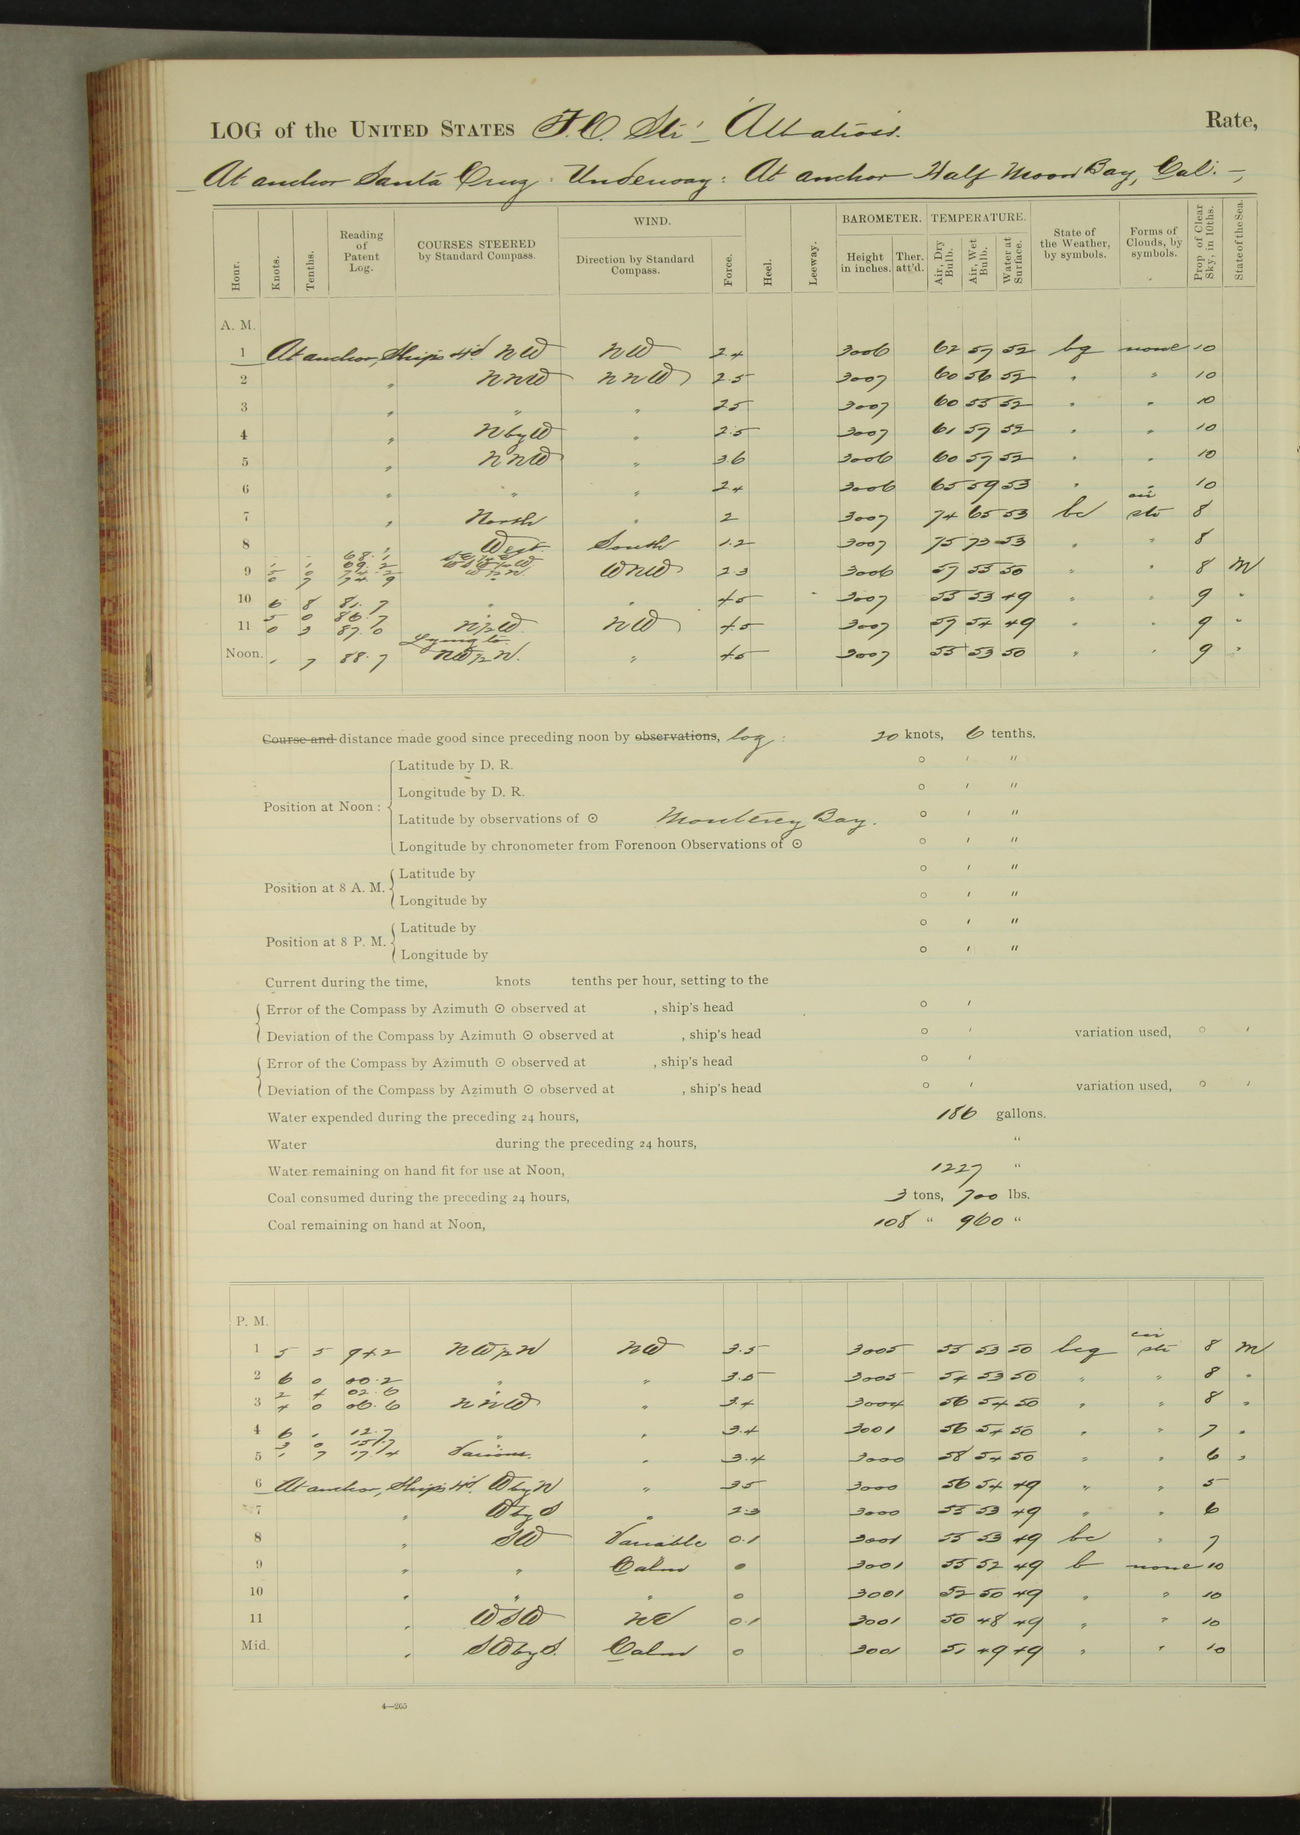 LOG of the UNITED STATES F.C. Str. "Albatross. Rate,
At anchor Santa Cruz : Underway : At anchor Half Moon Bay, Cal. —
Hour. Knots. Tenths. Reading of Patent Log. COURSES STEERED by Standard Compass. WIND. Direction by Standard Compass. Force. Heel. Leeway. BAROMETER. Height in inches. Ther. att'd. TEMPERATURE. Air, Dry Bulb. Air, Wet Bulb. Water at Surface. State of the Weather, by symbols. Forms of Clouds, by symbols. Prop. of Clear Sky, in 10ths. State of the Sea.
A. M.
1 At anchor, Ship's H'd NW NW 2.4 3006 62 57 52 bq none 10
2 " NNW NNW 2.5 3007 60 56 52 " " 10
3 " " " 2.5 3007 60 55 52 " " 10
4 " N by W " 2.5 3007 61 57 52 " " 10
5 " NNW " 3.6 3006 60 57 52 " " 10
6 " " " 2.4 3006 65 59 53 " " 10
7 " North " 2 3007 74 65 53 bc cir str 8
8 " West South 1.2 3007 75 73 53 " " 8
68.1
69.2
9 0 7 74.9 WNW 2.3 3006 57 55 50 " " 8 M
10 6 8 81.7 " " 4.5 3007 55 53 49 " " 9 "
5 0 86.7
11 0 3 87.0 N p W NW 4.5 3007 57 54 49 " " 9 "
Lying to
Noon. . 7 88.7 NW p N. " 4.5 3007 55 53 50 " " 9 "
Course and distance made good since preceding noon by observations, log : 20 knots, 6 tenths.
Position at Noon : Latitude by D. R. ° ′ ″
Longitude by D. R. ° ′ ″
Latitude by observations of ☉ Monterey Bay. ° ′ ″
Longitude by chronometer from Forenoon Observations of ☉ ° ′ ″
Position at 8 A. M. Latitude by ° ′ ″
Longitude by ° ′ ″
Position at 8 P. M. Latitude by ° ′ ″
Longitude by ° ′ ″
Current during the time, knots tenths per hour, setting to the
Error of the Compass by Azimuth ☉ observed at , ship's head ° ′
Deviation of the Compass by Azimuth ☉ observed at , ship's head ° ′ variation used, ° ′
Error of the Compass by Azimuth ☉ observed at , ship's head ° ′
Deviation of the Compass by Azimuth ☉ observed at , ship's head ° ′ variation used, ° ′
Water expended during the preceding 24 hours, 186 gallons.
Water during the preceding 24 hours, "
Water remaining on hand fit for use at Noon, 1227 "
Coal consumed during the preceding 24 hours, 3 tons, 700 lbs.
Coal remaining on hand at Noon, 108 " 960 "
P. M.
1 5 5 94.2 NW p N NW 3.5 3005 55 53 50 bcq cir str 8 M
2 6 0 00.2 " " 3.5 3005 54 53 50 " " 8 "
2 4 02.6
3 4 0 06.6 NNW " 3.4 3004 56 54 50 " " 8 "
4 6 1 12.7 " " 3.4 3001 56 54 50 " " 7 "
3 0 15.7
5 1 7 17.4 Various. " 3.4 3000 58 54 50 " " 6 "
6 At anchor, Ship's H'd. W by N " 3.5 3000 56 54 49 " " 5
7 " W by S " 2.3 3000 55 53 49 " " 6
8 " SW Variable 0.1 3001 55 53 49 bc " 7
9 " " Calm 0 3001 55 52 49 b none 10
10 " " " 0 3001 52 50 49 " " 10
11 " WSW NE 0.1 3001 50 48 49 " " 10
Mid. " SW by S. Calm 0 3001 51 49 49 " " 10
4—265